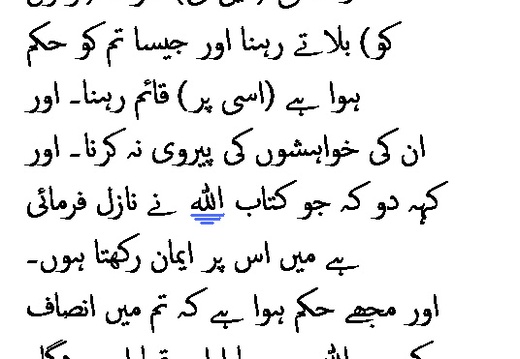 کو) بلاتے رہنا اور جیسا تم کو حکم
ہوا ہے (اسی پر) قائم رہنا۔ اور
ان کی خواہشوں کی پیروی نہ کرنا۔ اور
کہہ دو کہ جو کتاب الله نے نازل فرمائی
ہے میں اس پر ایمان رکھتا ہوں۔
اور مجھے حکم ہوا ہے کہ تم میں انصاف